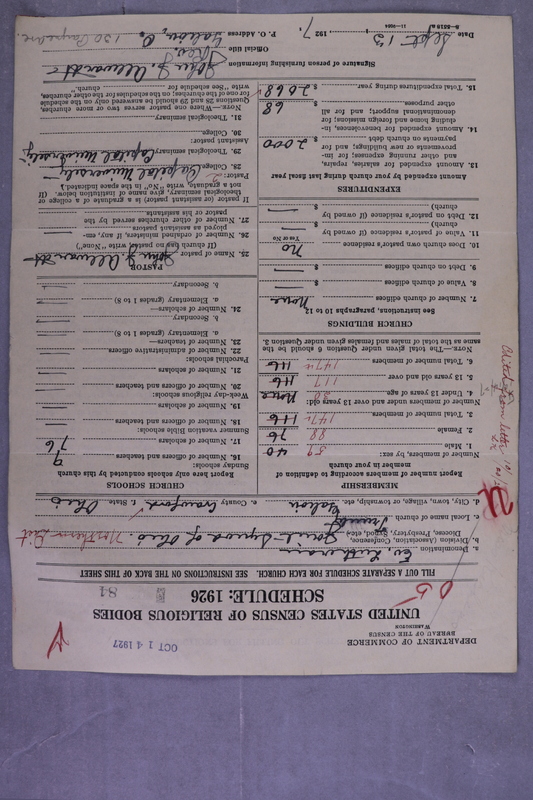 DEPARTMENT OF COMMERCE
BUREAU OF THE CENSUS
WASHINGTON
OCT 14 1927
UNITED STATES CENSUS OF RELIGIOUS BODIES
SCHEDULE: 1926
84
FILL OUT A SEPARATE SCHEDULE FOR EACH CHURCH. SEE INSTRUCTIONS ON THE BACK OF THIS SHEET
a. Denomination Ev. Lutheran
b. Division (Association, Conference, Diocese, Presbytery, Synod, etc.) Joint Synod of Ohio. Northern Dist
c. Local name of church Trinity
d. City, town, village, or township, etc. Galion e. County Crawford f. State Ohio
MEMBERSHIP
Report number of members according to definition of member in your church
Number of members, by sex:
1. Male 40 59
2. Female 76 88
3. Total number of members 116 147
Number of members under and over 13 years old:
4. Under 13 years of age None
5. 13 years old and over 116 117
6. Total number of members 116 147
NOTE.—The total given under Question 6 should be the same as the total of males and females given under Question 3.
CHURCH BUILDINGS
See instructions, paragraphs 10 to 12
7. Number of church edifices None
8. Value of church edifices $
9. Debt on church edifices $
10. Does church own pastor's residence No
Yes or No
11. Value of pastor's residence (if owned by church) $
12. Debt on pastor's residence (if owned by church) $
EXPENDITURES
Amount expended by your church during last fiscal year
13. Amount expended for salaries, repairs, and other running expenses; for improvements or new buildings; and for payments on church debt $ 2000
14. Amount expended for benevolences, including home and foreign missions; for denominational support; and for all other purposes $ 68
15. Total expenditures during year $ 2068
CHURCH SCHOOLS
Report here only schools conducted by this church
Sunday schools:
16. Number of officers and teachers 9
17. Number of scholars 76
Summer vacation Bible schools:
18. Number of officers and teachers
19. Number of scholars
Week-day religious schools:
20. Number of officers and teachers
21. Number of scholars
Parochial schools:
22. Number of administrative officers
23. Number of teachers—
a. Elementary (grades 1 to 8)
b. Secondary
24. Number of scholars—
a. Elementary (grades 1 to 8)
b. Secondary
PASTOR
25. Name of pastor John J. Allwardt
(If church has no pastor write "None")
26. Number of ordained ministers, if any, employed as assistant pastors
27. Number of other churches served by the pastor or his assistants
If pastor (or assistant pastor) is a graduate of a college or theological seminary, give name of institution below. (If not a graduate, write "No" in the space indicated.)
Pastor:
28. College Capital University
29. Theological seminary Capital University
Assistant pastor:
30. College
31. Theological seminary
NOTE.—Where one pastor serves two or more churches, Questions 28 and 29 should be answered only on the schedule for one of the churches; on the schedules for the other churches, write "See schedule for church."
Signature of person furnishing information John J. Allwardt
Official title Rev.
P. O. Address Galion, O.
Date Sept 13 1927.